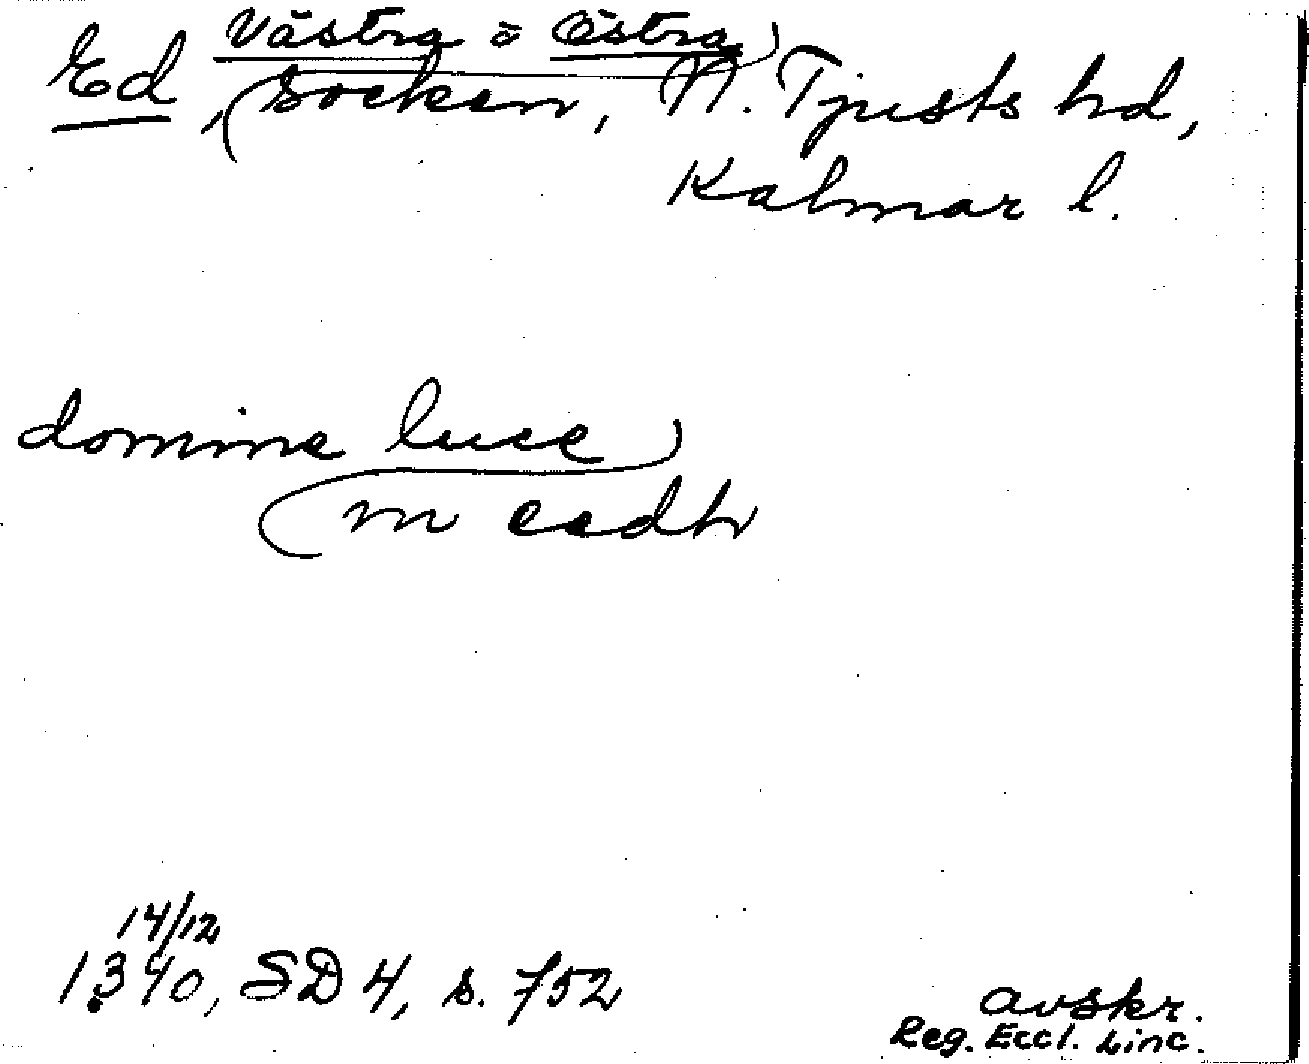 Västra o Östra
Ed, socken, N. Tjusts hd,
Kalmar l.
domine luce
in eedh
14/12
1340, SD 4, s. 752
avskr.
Reg. Eccl. Linc.